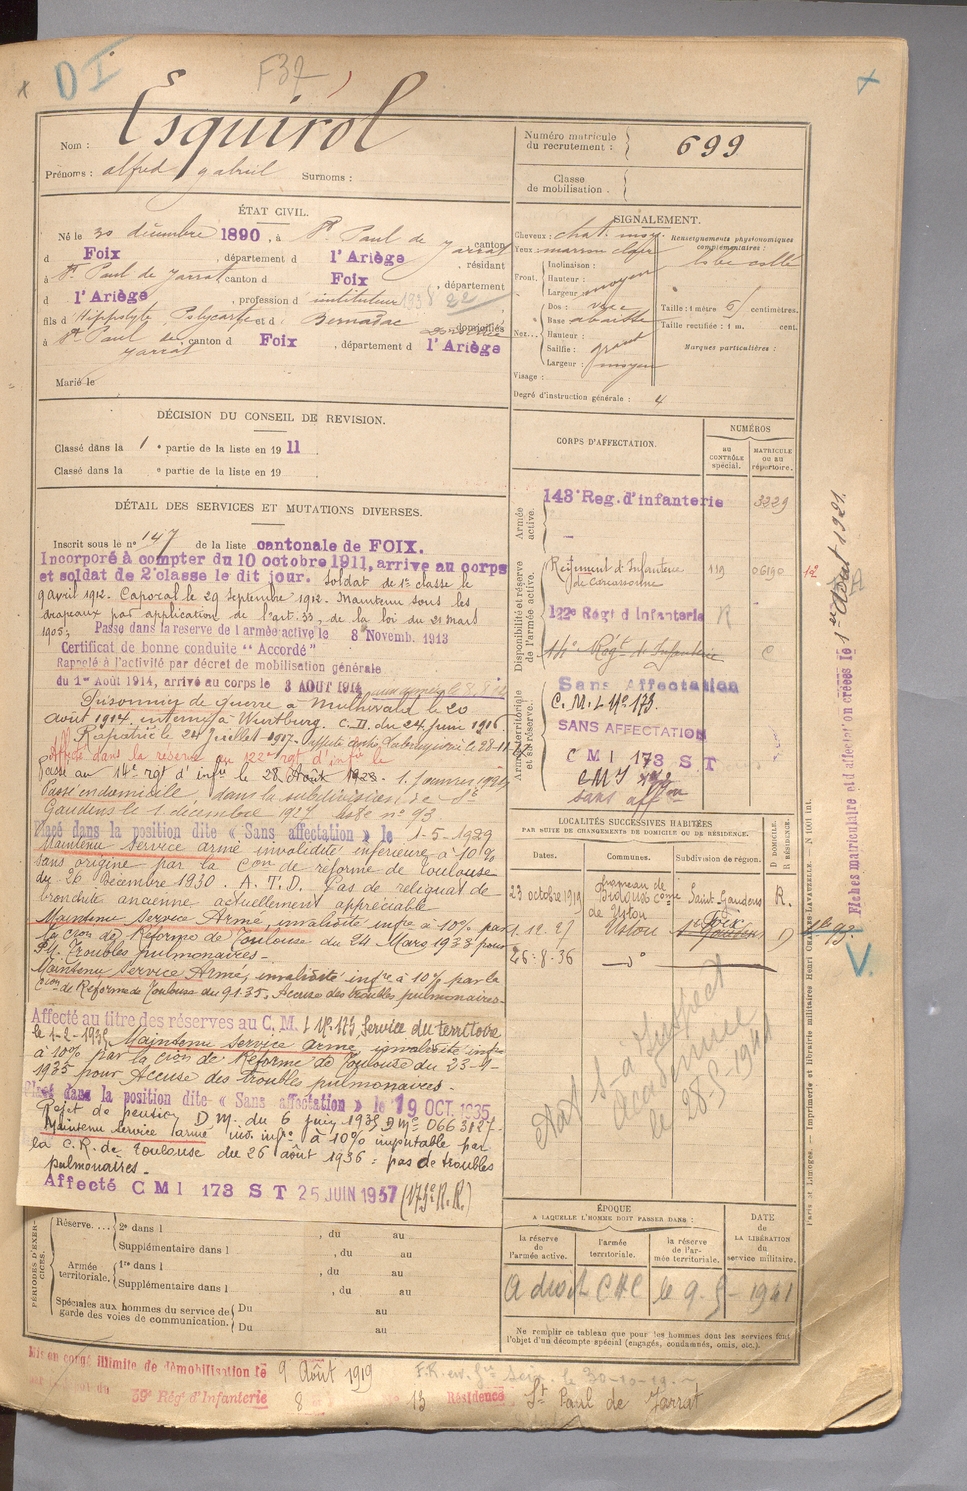 D I
F37
Nom : Esquirol
Prénoms : alfred gabriel Surnoms :
Numéro matricule du recrutement : 699
Classe de mobilisation .
ÉTAT CIVIL.
Né le 30 décembre 1890, à St. Paul de Jarrat, canton
d Foix, département d l'Ariège, résidant
à St. Paul de Jarrat canton d Foix, département
d l'Ariège, profession d instituteur
fils d Hippolyte Polycarpe et d Bernadac domiciliés
à St. Paul de Jarrat, canton d Foix, département d l'Ariège
Marié le
SIGNALEMENT.
Cheveux : chat. moy.
Yeux : marron clair
Front. Inclinaison :
Hauteur :
Largeur moyen
Nez... Dos :
Base
Hauteur :
Saillie : grand
Largeur : moyen
Visage :
Degré d'instruction générale : 4
Renseignements physionomiques complémentaires :
lobe collé
Taille : 1 mètre 61 centimètres.
Taille rectifiée : 1 m. cent.
Marques particulières :
DÉCISION DU CONSEIL DE REVISION.
Classé dans la 1 e partie de la liste en 19 11
Classé dans la e partie de la liste en 19
DÉTAIL DES SERVICES ET MUTATIONS DIVERSES.
Inscrit sous le n° 147 de la liste cantonale de FOIX.
Incorporé à compter du 10 octobre 1911, arrive au corps
et soldat de 2e classe le dit jour. Soldat de 1e classe le
9 avril 1912. Caporal le 29 Septembre 1912. Maintenu sous les
drapeaux par application de l'art. 33, de la loi du 21 mars
1905; Passe dans la reserve de l'armée active le 8 Novemb. 1913
Certificat de bonne conduite "Accordé"
Rappelé à l'activité par décret de mobilisation générale
du 1er Août 1914, arrivé au corps le 3 AOUT 1914
Prisonnier de guerre à Mulhwald le 20
août 1914, interné à Wurtburg. C. II. du 24 juin 1916.
Rapatrié le 24 Juillet 1917.
Affecté dans la réserve au 122e rgt d'infie le
Passé au 14e rgt d'infie le 28 Août 1928. 1. Janvier 1924
Passé en domicile dans la subdivision de St
Gaudens le 1 décembre 1927 n° 93
Placé dans la position dite « Sans affectation » le 1-5-1929
Maintenu service armé invalidité inférieure à 10%
sans origine par la Con de réforme de Toulouse
du 26 Décembre 1930. A.T.D. Pas de reliquat de
bronchite ancienne actuellement appréciable
Maintenu Service Armé, invalidité infre à 10% par
la cion de Réforme de Toulouse du 24 Mars 1938 pour
Pt. Troubles pulmonaires.
Maintenu Service Armé, invalidité infre à 10% par la
Cion de Réforme de Toulouse du 9.1.35. Accuse des troubles pulmonaires.
Affecté au titre des réserves au C. M. I. N° 173 Service du territoire
le 1-2-1935 Maintenu Service armé invalidité infre
à 10% par la cion de Réforme de Toulouse du 23-9-
1935 pour Accuse des troubles pulmonaires.
Placé dans la position dite « Sans affectation » le 19 OCT. 1935
Rejet de pension D.M. du 6 juin 1935 DMe 0663127.
Maintenu service armé inv. infre à 10% imputable par
la C.R. de Toulouse du 26 août 1936 : pas de troubles
pulmonaires.
Affecté C M I 173 S T 25 JUIN 1937 (173e R.R.)
CORPS D'AFFECTATION.
NUMÉROS
au CONTRÔLE spécial.
MATRICULE ou au répertoire.
Armée active.
143e Reg. d'infanterie 3229
Disponibilité et réserve de l'armée active.
Régiment d'Infanterie de Carcassonne 119 06190
122e Régt d'Infanterie R
14e Régt d'Infanterie C
Armée territoriale et sa réserve.
Sans Affectation
C. M. I. N° 173
SANS AFFECTATION
C M I 173 S T
CMI 173
sans affon
LOCALITÉS SUCCESSIVES HABITÉES
PAR SUITE DE CHANGEMENTS DE DOMICILE OU DE RÉSIDENCE.
Dates. Communes. Subdivision de région. D DOMICILE. R RÉSIDENCE.
23 octobre 1919 hameau de Bidous come de Ustou Saint Gaudens R.
1. 12. 27 Ustou Foix St Gaudens D
26-8-36 d°
à Inspect
Académie
le 28-5-1941
ÉPOQUE
A LAQUELLE L'HOMME DOIT PASSER DANS :
la réserve de l'armée active.
l'armée territoriale.
la réserve de l'armée territoriale.
DATE DE LA LIBÉRATION du service militaire.
a droit CAC le 9-5-1941
Ne remplir ce tableau que pour les hommes dont les services font l'objet d'un décompte spécial (engagés, condamnés, omis, etc.).
PÉRIODES D'EXERCICES.
Réserve.... 2e dans l , du au
Supplémentaire dans l , du au
Armée territoriale. 1re dans l , du au
Supplémentaire dans l , du au
Spéciales aux hommes du service de garde des voies de communication. Du au
Du au
Mis en congé illimité de démobilisation le 9 Août 1919
59e Rég. d'Infanterie 8 13 Résidence St Paul de Jarrat
Fiches matriculaire et d'affectation créées le 1er Août 1921.
Paris et Limoges. — Imprimerie et librairie militaires Henri CHARLES-LAVAUZELLE. — N° 1001 int.
V.